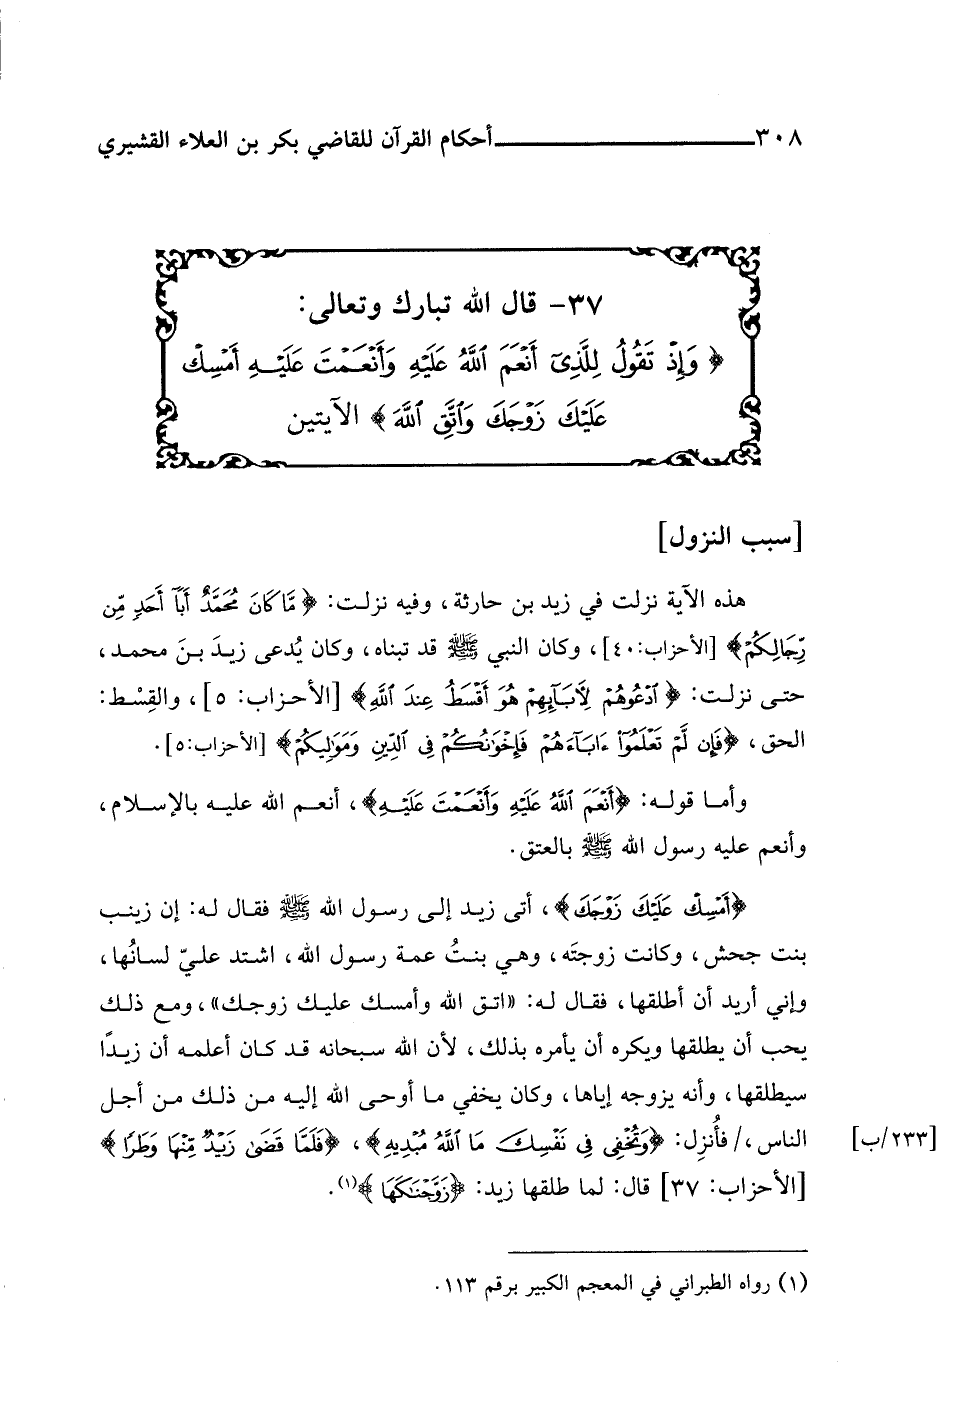 ٣٠٨ أحكام القرآن للقاضي بكر بن العلاء القشيري
٣٧- قال الله تبارك وتعالى:
﴿ وَإِذْ تَقُولُ لِلَّذِىٓ أَنْعَمَ ٱللَّهُ عَلَيْهِ وَأَنْعَمْتَ عَلَيْهِ أَمْسِكْ
عَلَيْكَ زَوْجَكَ وَٱتَّقِ ٱللَّهَ ﴾ الآيتين
[سبب النزول]
هذه الآية نزلت في زيد بن حارثة، وفيه نزلت: ﴿ مَّا كَانَ مُحَمَّدٌ أَبَآ أَحَدٍ مِّن
رِّجَالِكُمْ﴾ [الأحزاب:٤٠]، وكان النبي ﷺ قد تبناه، وكان يُدعى زيدَ بنَ محمد،
حتى نزلت: ﴿ ٱدْعُوهُمْ لِأٓبَآئِهِمْ هُوَ أَقْسَطُ عِندَ ٱللَّهِ﴾ [الأحزاب: ٥]، والقِسْط:
الحق، ﴿فَإِن لَّمْ تَعْلَمُوٓا۟ ءَابَآءَهُمْ فَإِخْوَٰنُكُمْ فِى ٱلدِّينِ وَمَوَٰلِيكُمْ﴾ [الأحزاب:٥].
وأما قوله: ﴿أَنْعَمَ ٱللَّهُ عَلَيْهِ وَأَنْعَمْتَ عَلَيْهِ﴾، أنعم الله عليه بالإسلام،
وأنعم عليه رسول الله ﷺ بالعتق.
﴿أَمْسِكْ عَلَيْكَ زَوْجَكَ﴾، أتى زيد إلى رسول الله ﷺ فقال له: إن زينب
بنت جحش، وكانت زوجتَه، وهي بنتُ عمة رسول الله، اشتد عليّ لسانُها،
وإني أريد أن أطلقها، فقال له: «اتق الله وأمسك عليك زوجك»، ومع ذلك
يحب أن يطلقها ويكره أن يأمره بذلك، لأن الله سبحانه قد كان أعلمه أن زيدًا
سيطلقها، وأنه يزوجه إياها، وكان يخفي ما أوحى الله إليه من ذلك من أجل
الناس،/ فأُنزِل: ﴿وَتُخْفِى فِى نَفْسِكَ مَا ٱللَّهُ مُبْدِيهِ﴾، ﴿فَلَمَّا قَضَىٰ زَيْدٌ مِّنْهَا وَطَرًا ﴾ [٢٣٣/ب]
[الأحزاب: ٣٧] قال: لما طلقها زيد: ﴿زَوَّجْنَٰكَهَا ﴾(١).
(١) رواه الطبراني في المعجم الكبير برقم ١١٣.